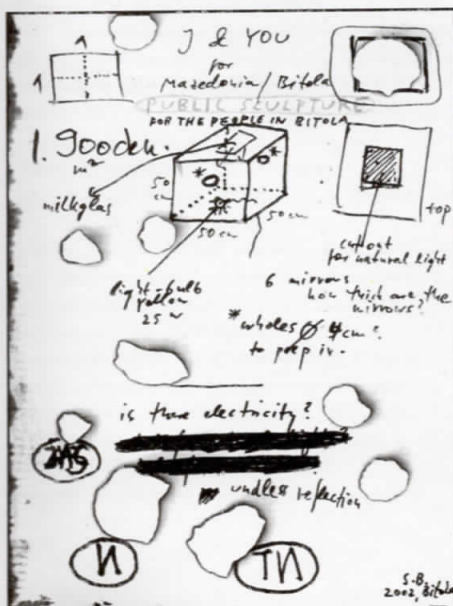 J & YOU
for
Mazedonia / Bitola
PUBLIC SCULPTURE
FOR THE PEOPLE IN BITOLA
1 1
1.
m²
milkglas
50 cm
50 cm
50 cm
top
cut out
for natural light
light-bulb
yellow
25 w
6 mirrors
how thick are the
mirrors?
* wholes Ø 4cm?
to peep in.
is there electricity?
undless reflection
И
TИ
S.B.
2002, Bitola